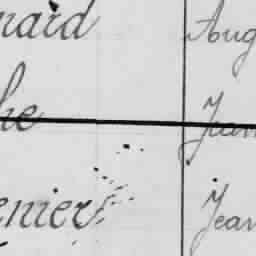 nard Aug
he Jean
enier Jean